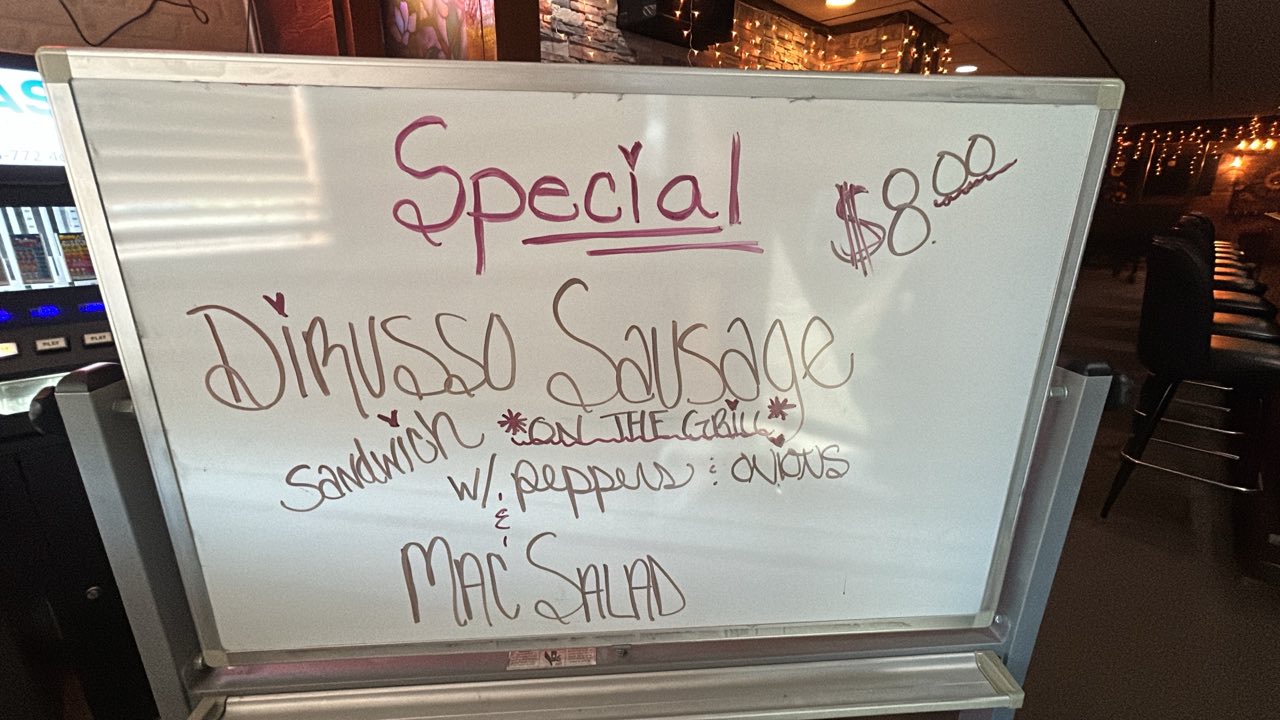 Special
$8.00
DiRUSSO Sausage
Sandwich *ON THE GRILL*
w/. peppers & ONIONS
&
MAC' SALAD
AS
-772-4
PLAY
PLAY